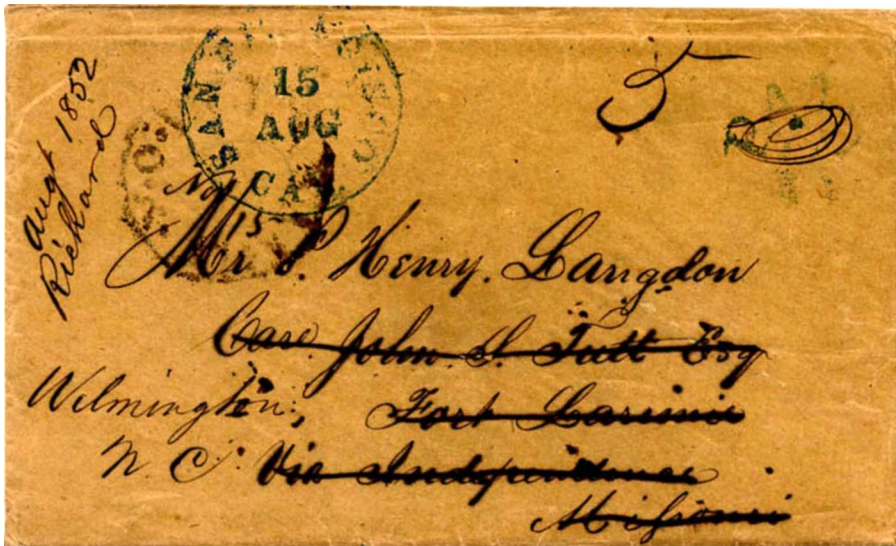 Augt 1852
Richard
SAN DIEGO
15
AUG
CAL
5
PAID
No 15
Mr P. Henry. Langdon
Care John S. Tutt Esq
Wilmington, Fort Laramie
N C. Via Independence
Missouri